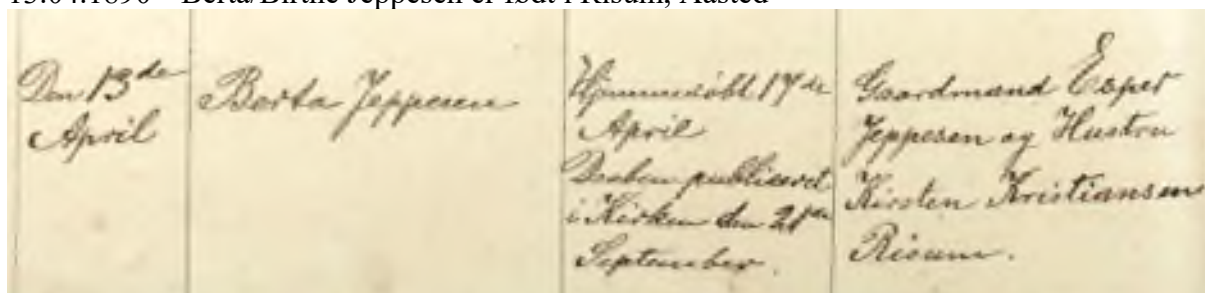 13.04.1890 Berta/Birthe Jeppesen er født i Risum, Aasted
Den 13de
April
Berta Jeppesen
Hjemmedøbt 17de
April
Daaben publiceret
i Kirken den 21de
September.
Gaardmand Esper
Jeppesen og Hustru
Kirsten Kristiansen
Risum.